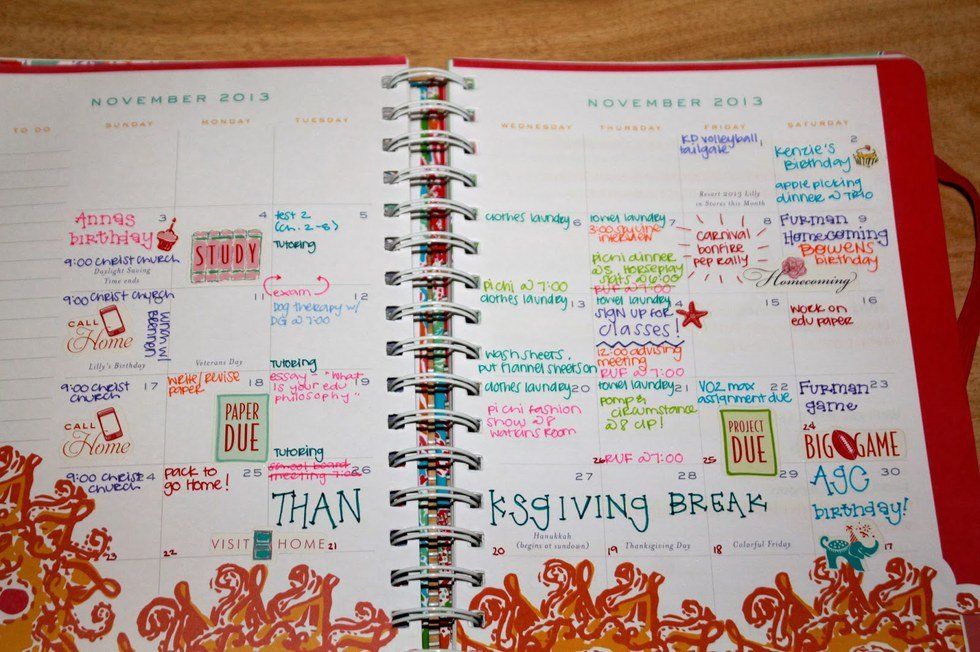 NOVEMBER 2013
TO DO SUNDAY MONDAY TUESDAY
Annas
birthday
3
9:00 Christ Church
Daylight Saving
Time ends
4
STUDY
5
test 2
(Ch. 2-8)
Tutoring
9:00 Christ Church
CALL
Home
Lunch w/
Brennen
Lilly's Birthday
11
Veterans Day
exam
12
Dog therapy w/
DG @ 7:00
Tutoring
9:00 Christ
church
17
CALL
Home
write/revise
paper
18
PAPER
DUE
essay - "What
is your edu
philosophy"
19
Tutoring
9:00 Christ
church
4
23
pack to
go Home!
25
22
VISIT HOME
school board
meeting 7:00
26
THAN
21
NOVEMBER 2013
WEDNESDAY THURSDAY FRIDAY SATURDAY
KD volleyball,
tailgate
Resort 2013 Lilly
in Stores this Month
2
Kenzie's
Birthday
apple picking
dinner @ TRIO
clothes laundry
6
Pi chi @ 7:00
towel laundry
7
3:00
interview
pi chi dinner
@5, Horseplay
@ 6:00
RUF @ 7:00
8
carnival
bonfire
pep rally
Furman
Homecoming
9
BOWENS
birthday
Homecoming
clothes laundry
13
wash sheets,
put flannel sheets on
towel laundry
4
SIGN UP FOR
classes!
12:00 advising
meeting
RUF @ 7:00
15
16
work on
edu paper
clothes laundry
20
pi chi fashion
show @ 8
Watkins Room
towel laundry
21
pomp &
circumstance
@ 8 CLP!
26
RUF @ 7:00
VO2 max
assignment due
22
PROJECT
DUE
25
Furman
game
23
24
BIG GAME
27
KSGIVING BREAK
Hanukkah
(begins at sundown)
20
28
19
Thanksgiving Day
29
18
Colorful Friday
30
AGC
birthday!
17